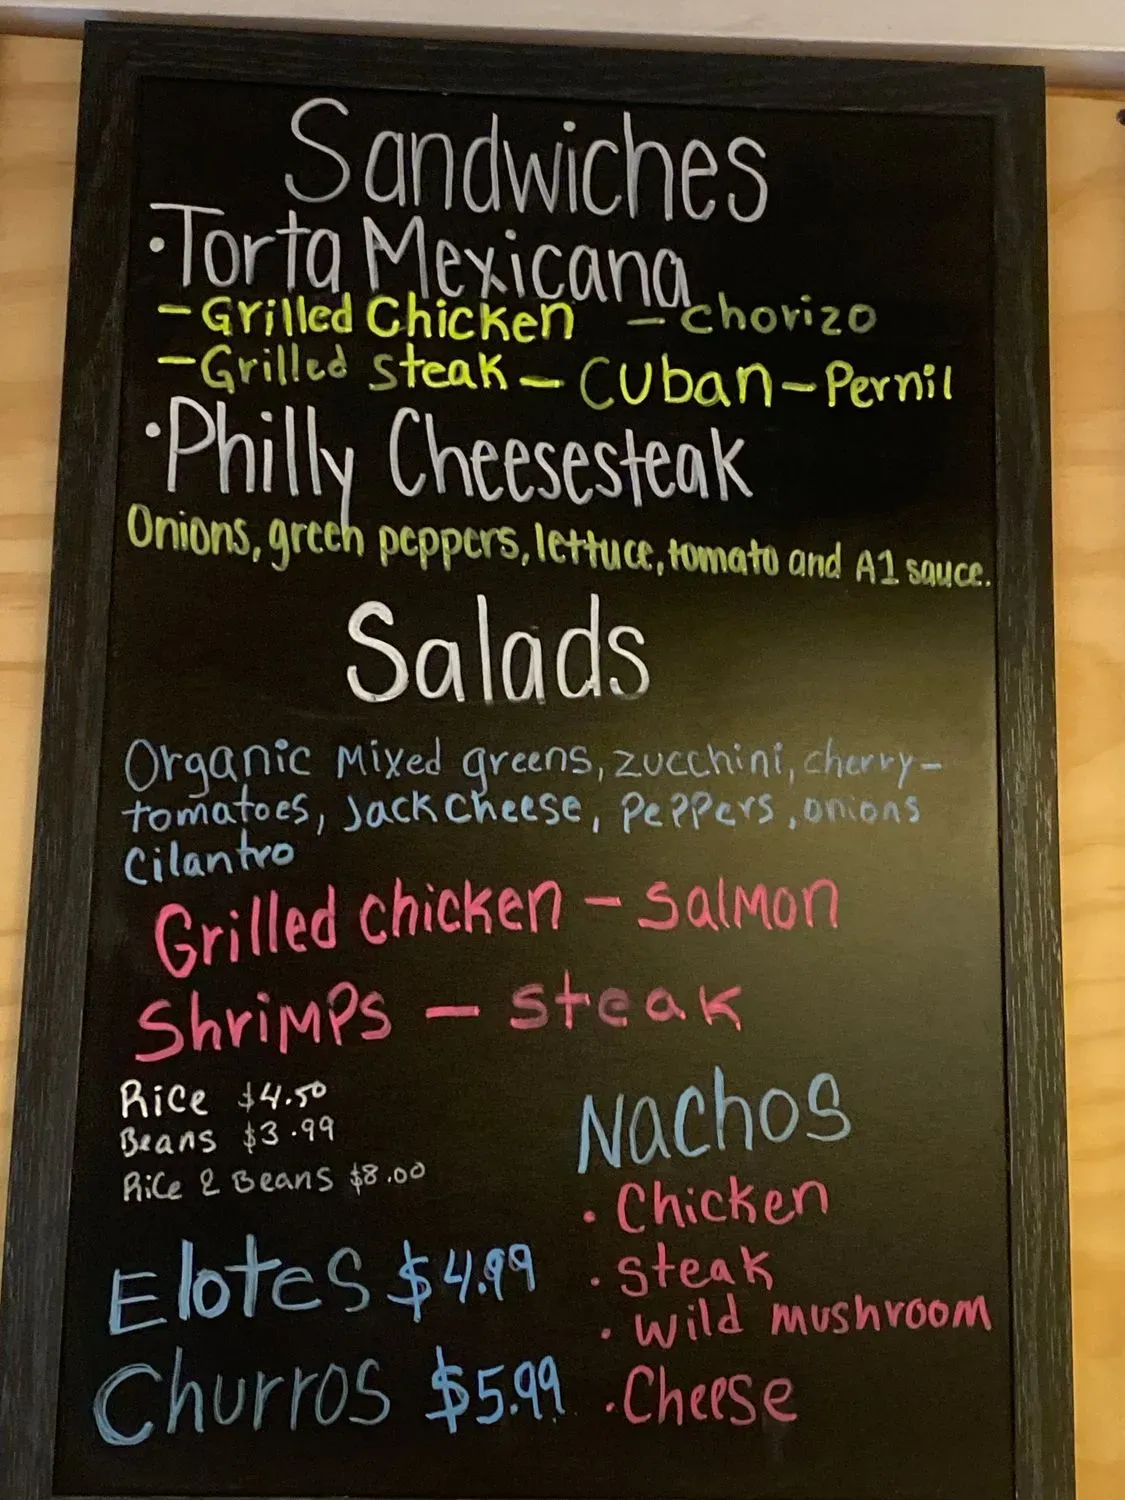 Sandwiches
·Torta Mexicana
-Grilled Chicken -chorizo
-Grilled steak - Cuban-Pernil
·Philly Cheesesteak
Onions, green peppers, lettuce, tomato and A1 sauce.
Salads
Organic Mixed greens, zucchini, cherry-
tomatoes, Jack Cheese, Peppers, onions
Cilantro
Grilled chicken - salmon
Shrimps - steak
Rice $4.50
Beans $3.99
Rice & Beans $8.00
Elotes $4.99
Churros $5.99
Nachos
· Chicken
· steak
· wild mushroom
· Cheese